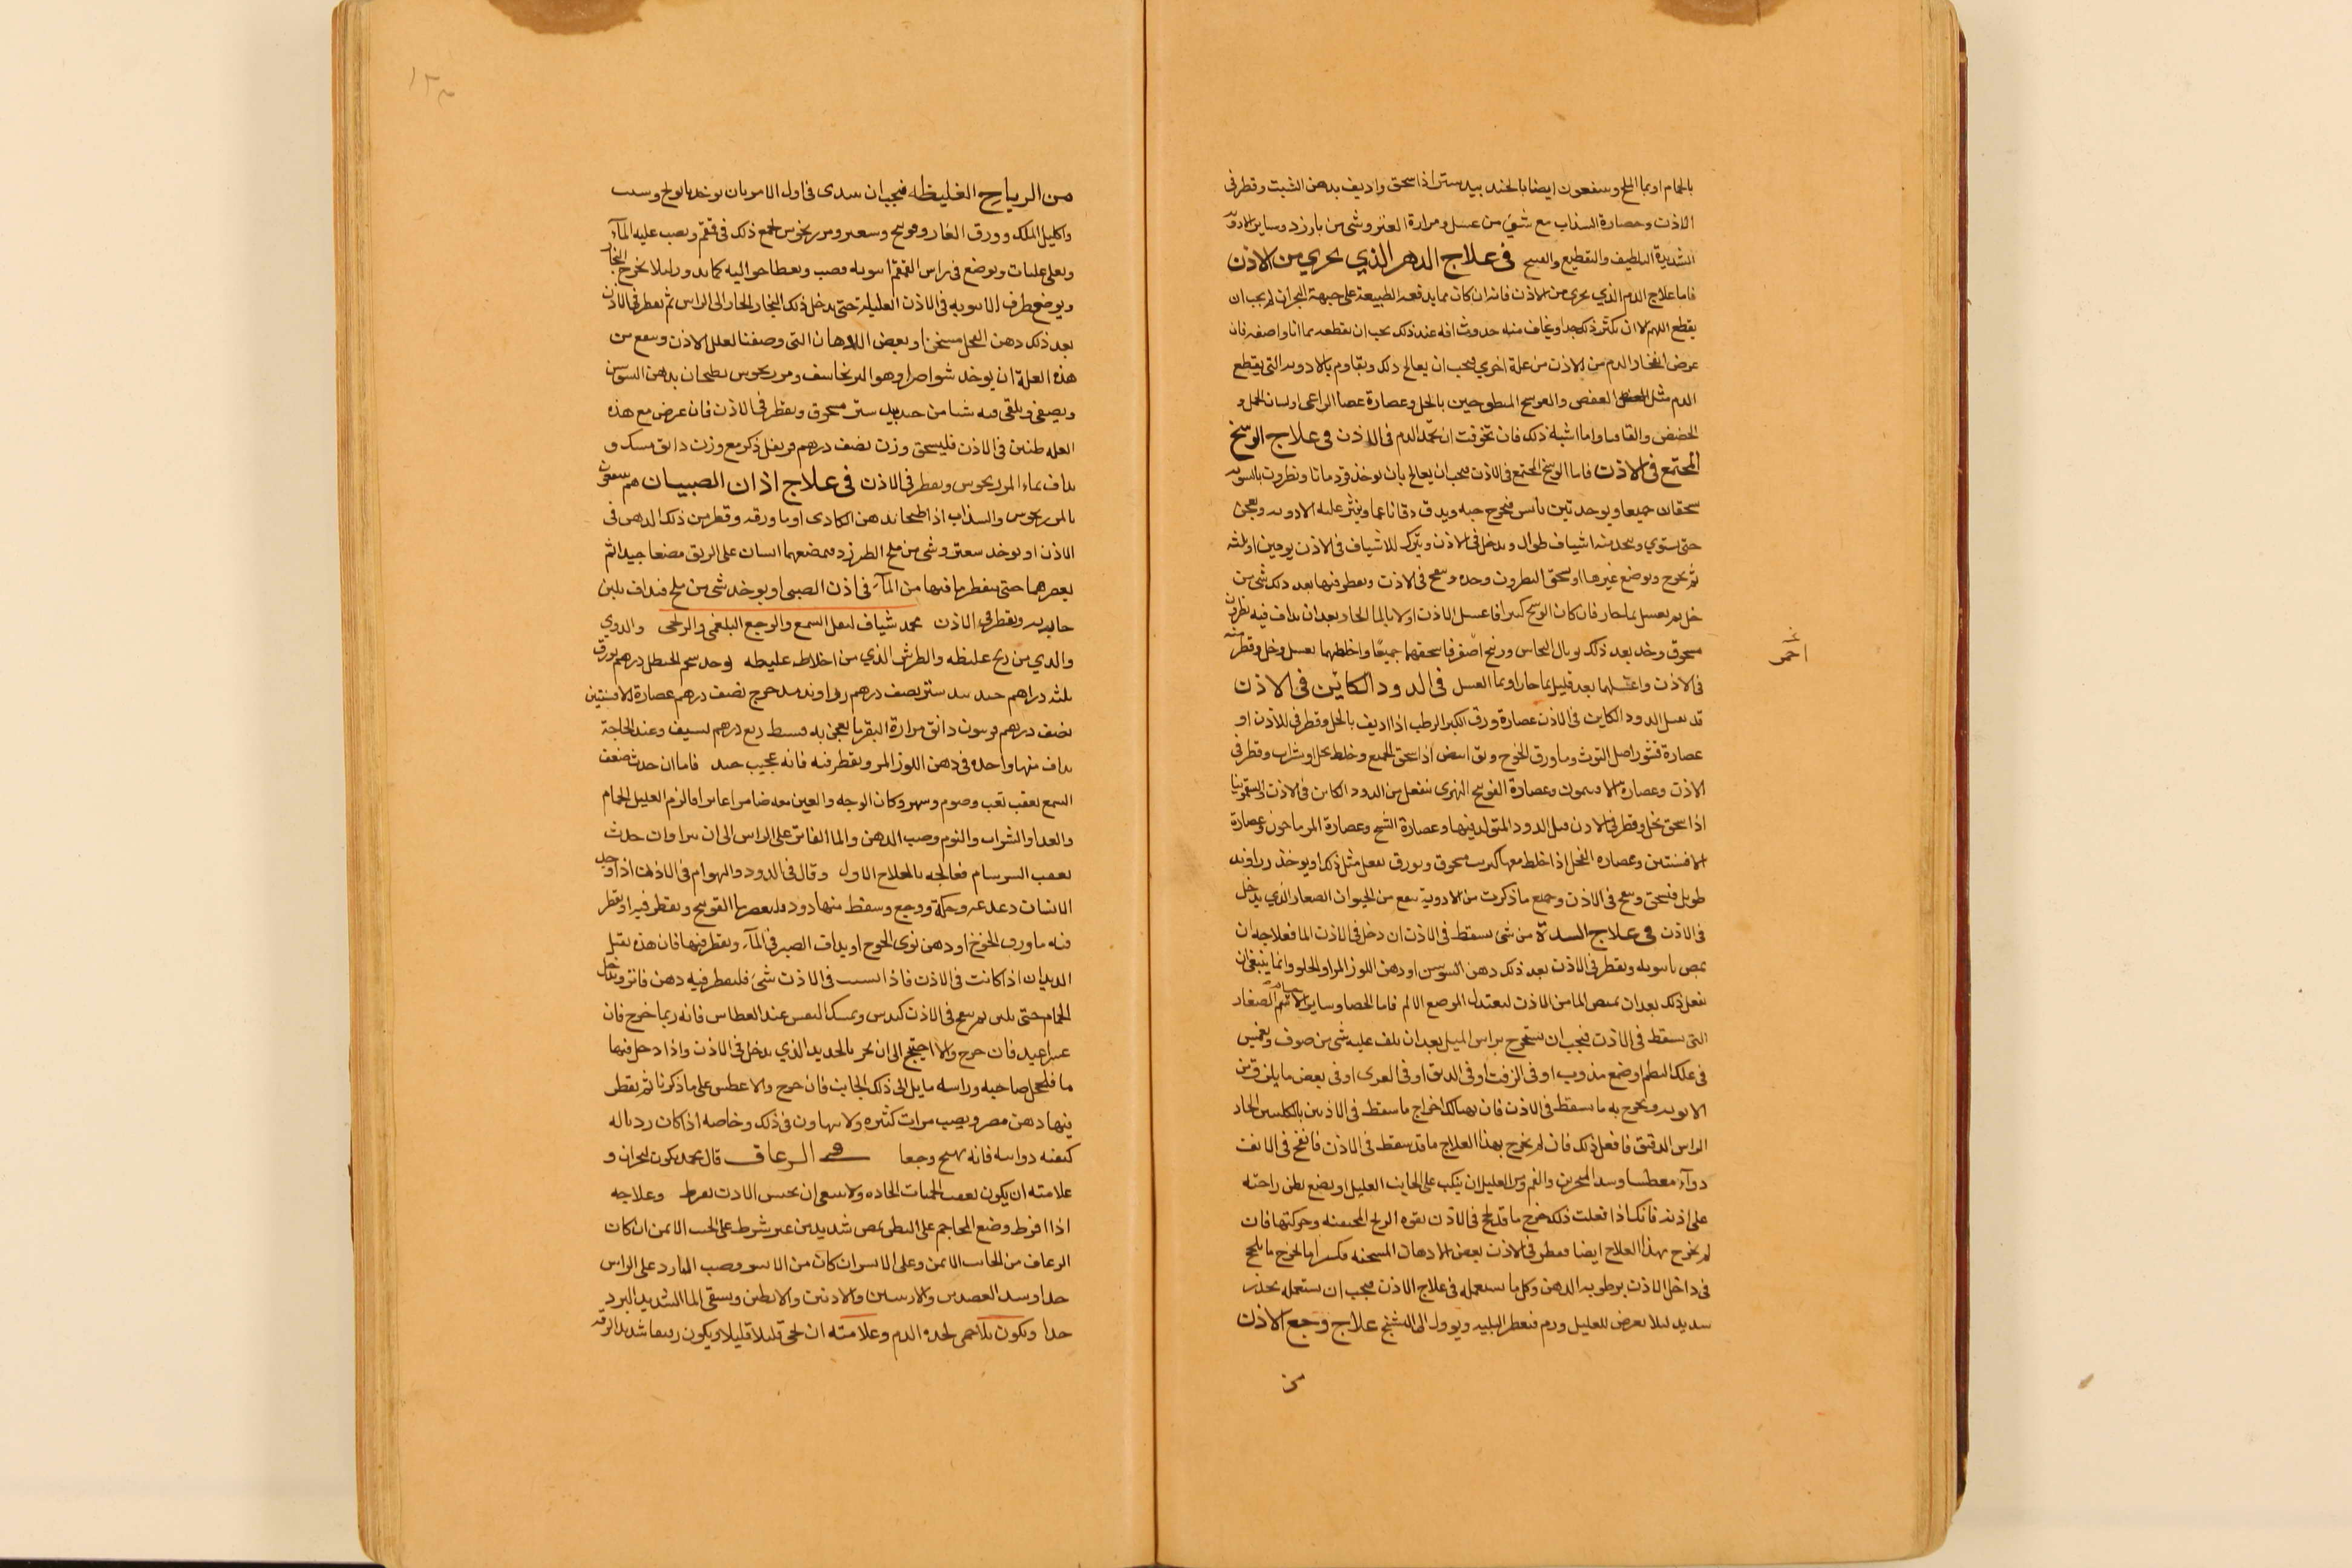 بالحمام او بماء الملح وينفعون ايضا بالجند بيدستر اذا سحق واديف بدهن الشبت وقطر في
الاذن وعصارة السذاب مع شيء من عسل ومرارة العنز وشي من بارزد وساير الادويه
الشديدة التلطيف والتقطيع في علاج الدم الذي يجري من الاذن
فاما علاج الدم الذي يجري من الاذن فانه ان كان مما يدفعه الطبيعة على جهة البحران لم يجب ان
يقطع اللهم الا ان يكثر ذلك جدا ويخاف منه حدوث افه عند ذلك يجب ان نقطعه بما انا واصفه فان
عرض انفجار الدم من الاذن من علة اخري فيجب ان يعالج ذلك ويقاوم بالادويه التي يقطع
الدم مثل العفص والعوسج المطبوخين بالخل وعصارة عصا الراعي ولسان الحمل و
الحضض والقاقيا وما اشبه ذلك فان تخوفت ان يجمد الدم في الاذن في علاج الوسخ
المجتمع في الاذن فاما الوسخ المجتمع في الاذن فيجب ان يعالج بان يوخذ قردمانا ونطرون بالسويه
يسحقان جميعا ويوخذ تين يابس فيخرج حبه ويدق دقا ناعما وينثر عليه الادويه ويعجن
حتى يستوي ويتخذ منه اشياف طوال ويدخل في الاذن ويترك الاشياف في الاذن يومين او ثلثه
ثم يخرج ويوضع غيرها او يسحق النطرون وحده وينفخ في الاذن ويقطر فيها بعد ذلك شي من
خل ثم يغسل بماء حار فان كان الوسخ كثيرا فاغسل الاذن اولا بالماء الحار بعد ان يداف فيه نطرون
مسحوق وخذ بعد ذلك توبال النحاس وزرنيخ اصفر فاسحقهما جميعا واخلطهما بعسل وخل وقطر منه
في الاذن واغسلهما بعد قليل بماء حار او بماء العسل في الدود الكائن في الاذن
قد يقتل الدود الكاين في الاذن عصارة ورق الكبر الرطب اذا اديف بالخل وقطر في الاذن او
عصارة قشور اصل التوث وماء ورق الخوخ اذا سحق الجميع وخلط بخل او شراب وقطر في
الاذن وعصارة الافتيمون وعصارة الفوتنج النهري ينفعان من الدود الكاين في الاذن والسقمونيا
اذا سحق بخل وقطر في الاذن قتل الدود المتولد فيها وعصارة الشيح وعصارة المرماحوز وعصارة
الافسنتين وعصاره الفجل اذا خلط معها كبريت مسحوق وبورق يفعل مثل ذلك او يوخذ زراوند
طويل فيسحق وينفخ في الاذن وجميع ما ذكرت من الادوية ينفع من الحيوان الصغار الذي يدخل
في الاذن في علاج السدة من شي يسقط في الاذن ان دخل في الاذن الماء فعلاجه ان
يمص بانبوبه ويقطر في الاذن بعد ذلك دهن السوسن او دهن اللوز المر او الحلو وانما ينبغي ان
نفعل ذلك بعد ان يمص الماء من الاذن ليعتدل الموضع الالم فاما الحصا وساير الاجسام الصغار
التي تسقط في الاذن فيجب ان يستخرج براس الميل بعد ان يلف عليه شي من صوف ويغمس
في علك البطم او صمغ مذوب او في الزفت او في الدبق او في الغرى او في بعض ما يلزق من
الادويه ويخرج به ما يسقط في الاذن فان هنالك اخراج ما سقط في الاذنين بالكلبتين الحاد
الراس الدقيق فافعل ذلك فان لم يخرج بهذا العلاج ما قد سقط في الاذن فانفخ في الانف
دوآء معطسا وسد المنخرين والفم ومر العليل ان ينكب على الجانب العليل او يضع بطن راحته
على اذنه فانك اذا فعلت ذلك خرج ما قد لحج في الاذن بقوه الريح المحتقنه وحركتها فان
لم يخرج بهذا العلاج ايضا فقطر في الاذن بعض الادهان المسخنه فكثيرا ما يخرج ما يلحج
في داخل الاذن برطوبه الدهن وكل ما تستعمله في علاج الاذن فيجب ان تستعمله بحذر
شديد ليلا يعرض للعليل ورم فيعظم البليه ويوول الى التشنج علاج وجع الاذن
من
احمر
١٣٠
من الرياح الغليظه فيجب ان يبتدى في اول الامر بان يوخذ بابونج وشبت
واكليل الملك وورق الغار وفوتنج وسعتر ومرزنجوش يجمع ذلك في قمقم ويصب عليه المآء
ويغلى غليات ويوضع في راس القمقم انبوبه قصب ويغطا حواليه كما يدور ليلا يخرج البخار
ويوضع طرف الانبوبه في الاذن العليلة حتى يدخل ذلك البخار الحار الى الراس ثم يقطر في الاذن
بعد ذلك دهن الفجل مسخن او بعض الادهان التي وصفنا لعلل الاذن وينفع من
هذه العلة ان يوخذ شواصرا وهو البرنجاسف ومرزنجوش يطبخان بدهن السوسن
ويصفى ويلقى فيه شيا من جندبيد ستر مسحوق ويقطر في الاذن فان عرض مع هذه
العله طنين في الاذن فليسحق وزن نصف درهم قرنفل ذكر مع وزن دانق مسك و
يداف بماء المرزنجوش ويقطر في الاذن في علاج اذان الصبيان هم ينتفعون
بالمرزنجوش والسذاب اذا طبخا بدهن الكاذى او ماء ورقه وقطر من ذلك الدهن في
الاذن او يوخذ سعتر وشي من ملح الطبرزد فيمضغهما انسان على الريق مضغا جيدا ثم
يعصرهما حتى يقطر ما فيها من المآء في اذن الصبي او يوخذ شي من ملح فيداف بلبن
جاريه ويقطر في الاذن محمد شياف لثقل السمع والوجع البلغمى والريحى والدوي
والذي من ريح غليظه والطرش الذي من اخلاط غليظه يوخذ شحم الحنظل درهم بورق
ثلثه دراهم جند بيد ستر نصف درهم زراوند مدحرج نصف درهم عصارة الافسنتين
نصف درهم فربيون دانق مرارة البقر ما يعجن به قسط ربع درهم يشيف وعند الحاجة
يداف منها واحده في دهن اللوز المر ويقطر فيه فانه عجيب جيد فاما ان حدث ضعف
السمع بعقب تعب وصوم وسهر وكان الوجه والعين معه ضامرا غايرا فالزم العليل الحمام
والغذا والشراب والنوم وصب الدهن والماء الفاتر على الراس الى ان يبرا وان حدث
بعقب السرسام فعالجه بالعلاج الاول وقال في الدود والهوام في الاذن اذا وجد
الانسان دغدغه وحكة ووجع وسقط منها دود فليعصر ماء الفوتنج ويقطر فيه او يقطر
فيه ماء ورق الخوخ او دهن نوى الخوخ او يداف الصبر في المآء ويقطر فيها فان هذه تقتل
الديدان اذا كانت في الاذن فاذا نشب في الاذن شيء فليقطر فيه دهن فاتر ويدخل
الحمام حتى يلين ثم ينفخ في الاذن كندس ويمسك النفس عند العطاس فانه ربما خرج فان
عسر اعيد فان خرج والا احتيج الى ان يجر بالحديد الذي يدخل في الاذن واذا دخل فيها
ماء فليحجل صاحبه وراسه مايل الى ذلك الجانب فان خرج والا عطس على ما ذكرنا ثم يقطر
فيها دهن مفتر ويصب مرات كثيره ولا يتهاون في ذلك وخاصه اذا كان رديا له
كيفيه دوائيه فانه يهيج وجعا في الرعاف قال محمد يكون لبحران و
علامته ان يكون بعقب الحميات الحاده ولا ينبغي ان يحبس الا ان يفرط وعلاجه
اذا افرط وضع المحاجم على البطن بمص شديد من غير شرط على الجنب الايمن ان كان
الرعاف من الجانب الايمن وعلى الايسر ان كان من الايسر وصب المآء البارد على الراس
جدا وشد العضدين والاربيتين والاذنين والابطين ويسقى الماء الشديد البرد
جدا ويكون بلا حمى لحده الدم وعلامته ان يجي قليلا قليلا ويكون رقيقا شديد الرقه